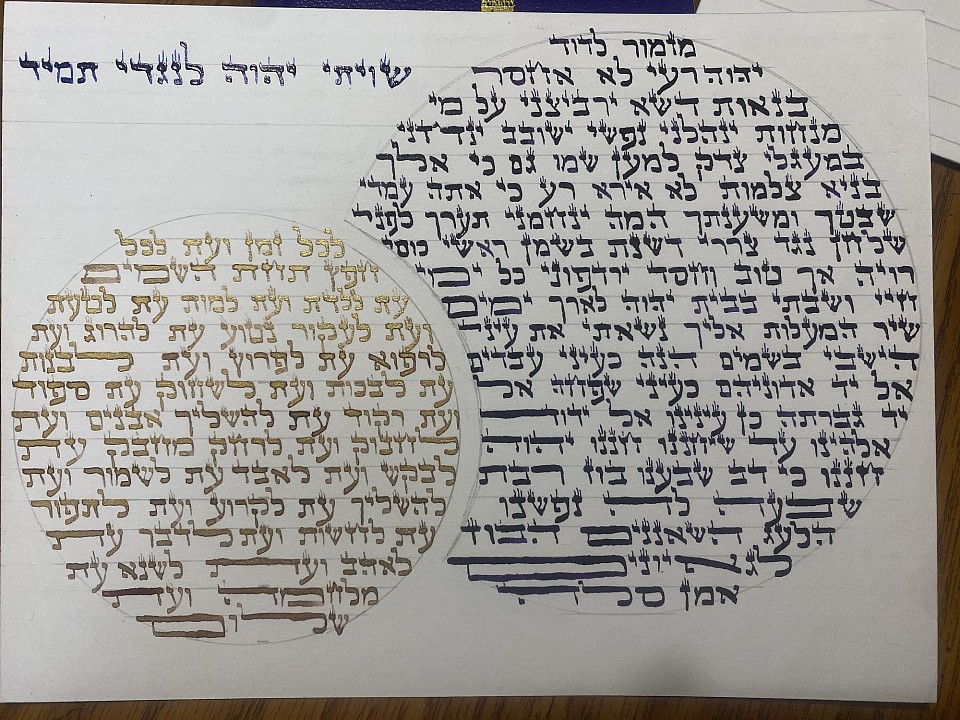 שויתי יהוה לנגדי תמיד
מזמור לדוד
יהוה רעי לא אחסר
בנאות דשא ירביצני על מי
מנחות ינהלני נפשי ישובב ינחני
במעגלי צדק למען שמו גם כי אלך
בגיא צלמות לא אירא רע כי אתה עמדי
שבטך ומשענתך המה ינחמני תערך לפני
שלחן נגד צררי דשנת בשמן ראשי כוסי
רויה אך טוב וחסד ירדפוני כל ימי
חיי ושבתי בבית יהוה לארך ימים
שיר המעלות אליך נשאתי את עיני
הישבי בשמים הנה כעיני עבדים
אל יד אדוניהם כעיני שפחה אל
יד גברתה כן עינינו אל יהוה
אלהינו עד שיחננו חננו יהוה
חננו כי רב שבענו בוז רבת
שבעה לה נפשנו
הלעג השאננים הבוז
לגאיונים
אמן סלה
לכל זמן ועת לכל
חפץ תחת השמים
עת ללדת ועת למות עת לטעת
ועת לעקור נטוע עת להרוג ועת
לרפוא עת לפרוץ ועת לבנות
עת לבכות ועת לשחוק עת ספוד
ועת רקוד עת להשליך אבנים ועת
לחבוק ועת לרחק מחבק עת
לבקש ועת לאבד עת לשמור ועת
להשליך עת לקרוע ועת לתפור
עת לחשות ועת לדבר עת
לאהב ועת לשנא עת
מלחמה ועת
שלום